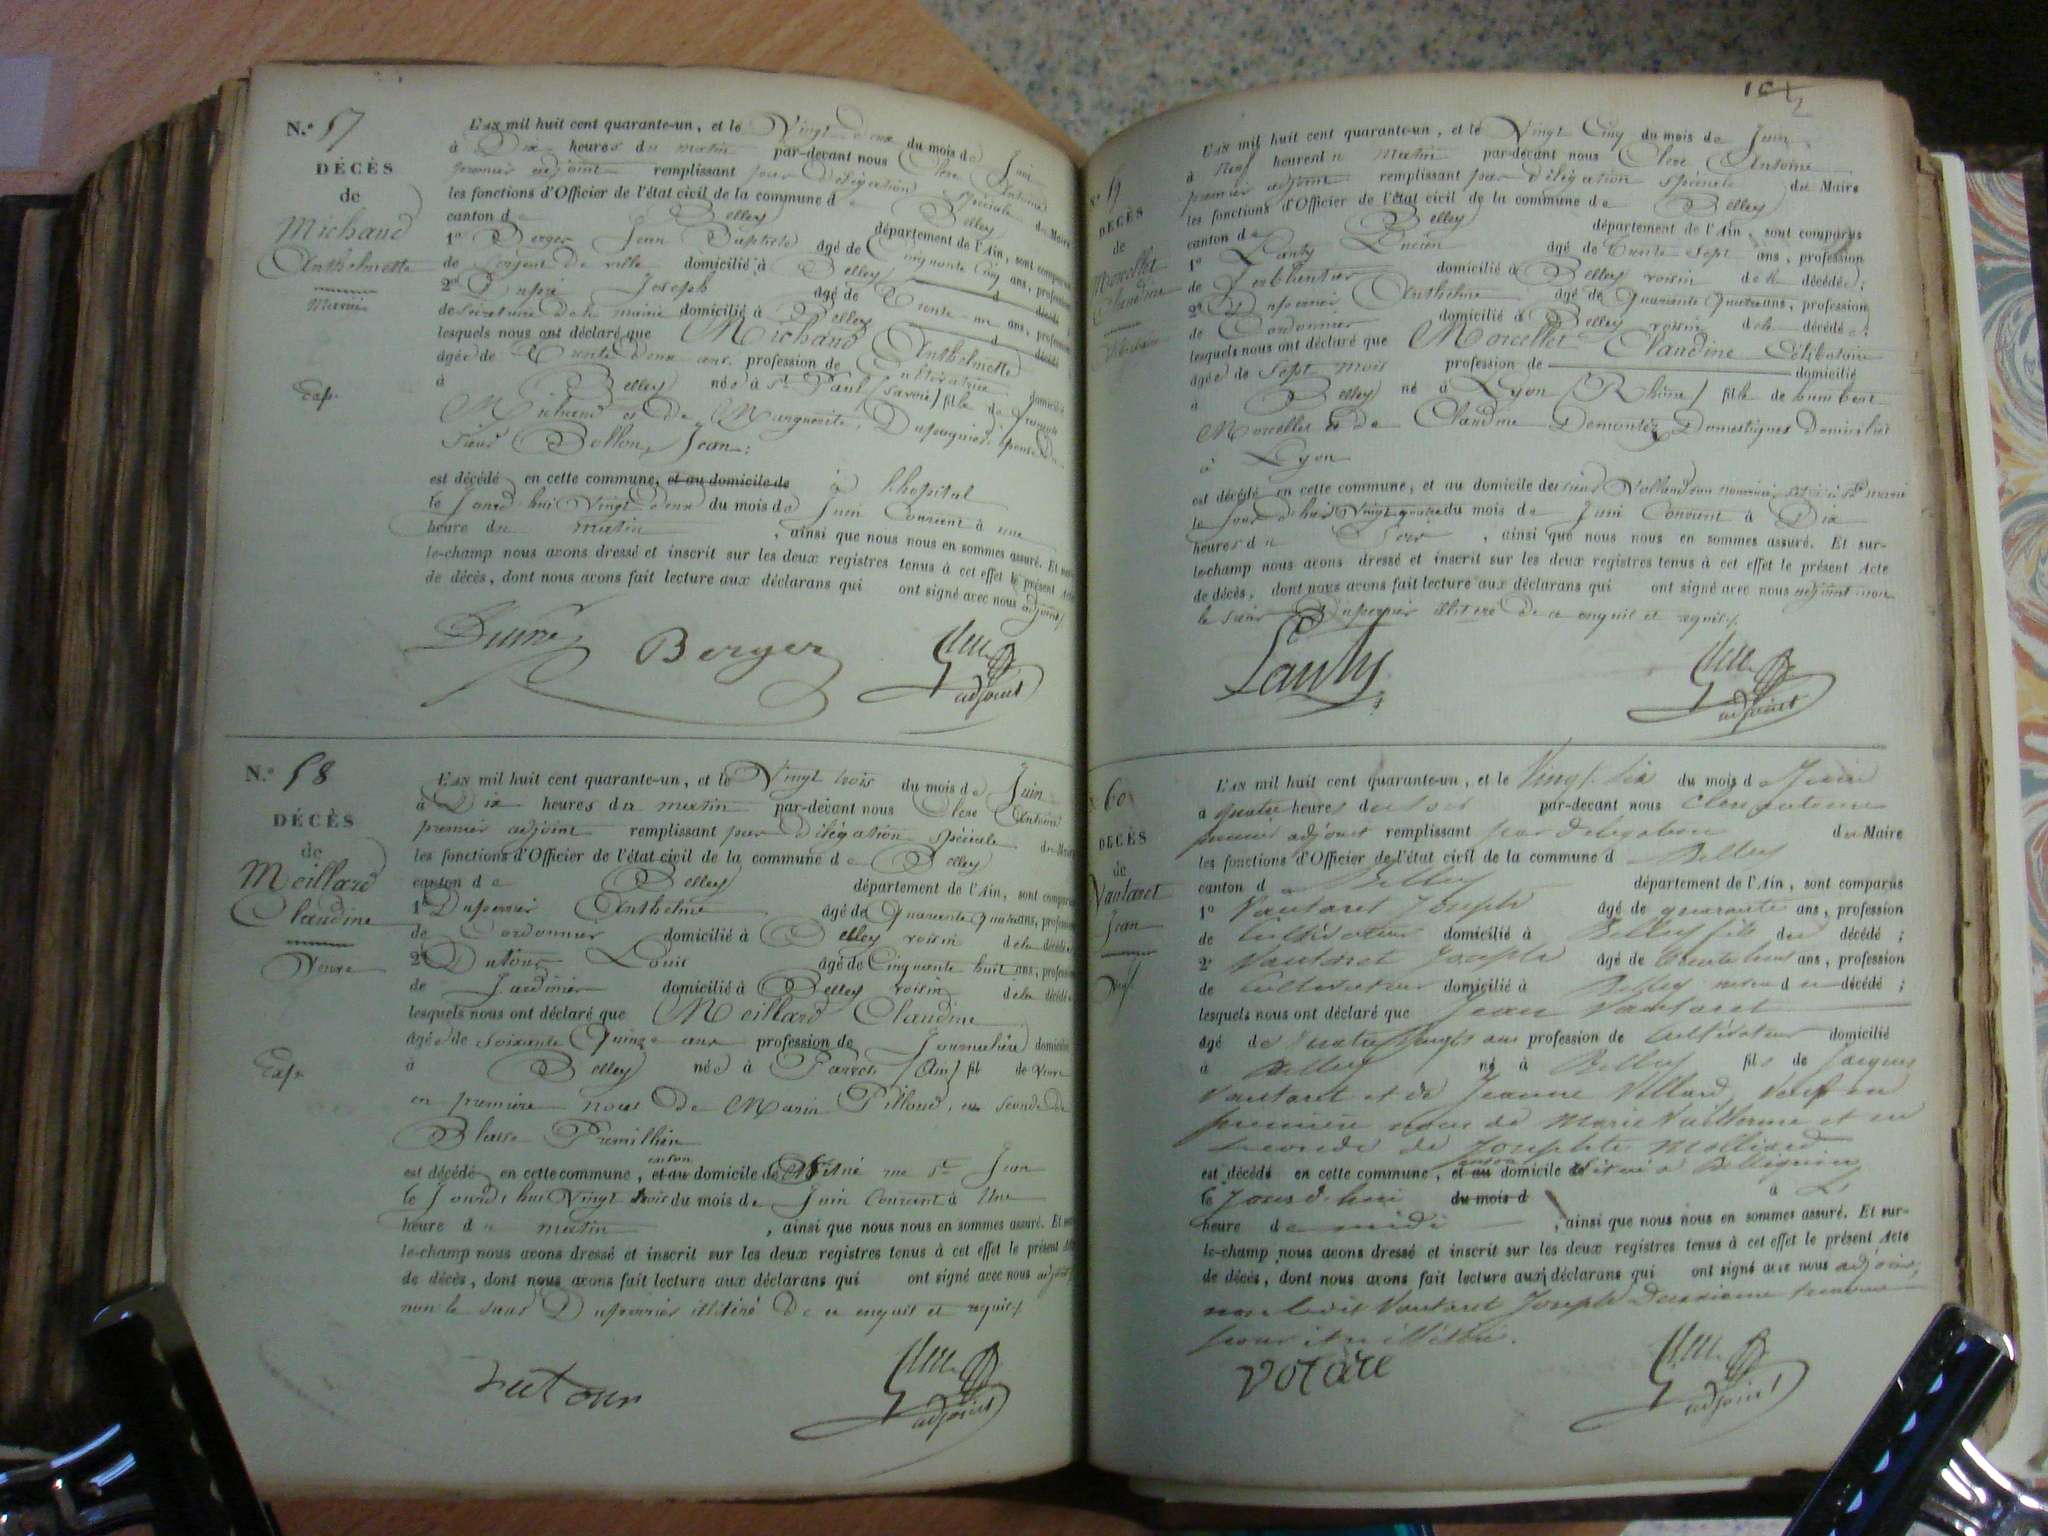 N.º 57
DÉCÈS
de
Michaud
Anthelmette
Mariée
L'AN mil huit cent quarante-un, et le Vingt deux du mois de Juin
à Dix heures du matin par-devant nous Clerc Antoine
premier adjoint remplissant par délégation spéciale du Maire
les fonctions d'Officier de l'état civil de la commune de Belley
canton de Belley département de l'Ain, sont comparus
1º Berger Jean Baptiste âgé de Cinquante Cinq ans, profession
de Sergent de ville domicilié à Belley d décédé
2º Dupré Joseph âgé de Trente un ans, profession
de Secrétaire de la mairie domicilié à Belley d décédé
lesquels nous ont déclaré que Michaud Anthelmette
âgée de Trente deux ans profession de Cultivatrice domicilié
à Belley née à St Paul (Savoie) fille de
Michaud et de Marguerite épouse du
sieur Bollon Jean;
est décédé en cette commune, et au domicile de à l'hopital
le Jourd'hui Vingt deux du mois de Juin Courant à une
heure du matin , ainsi que nous nous en sommes assuré. Et sur-
le-champ nous avons dressé et inscrit sur les deux registres tenus à cet effet le présent Acte
de décès, dont nous avons fait lecture aux déclarans qui ont signé avec nous adjoint
Berger
adjoint
N.º 58
DÉCÈS
de
Meillard
Claudine
Veuve
L'AN mil huit cent quarante-un, et le Vingt trois du mois de Juin
à Dix heures du matin par-devant nous Clerc Antoine
premier adjoint remplissant par délégation spéciale du Maire
les fonctions d'Officier de l'état civil de la commune de Belley
canton de Belley département de l'Ain, sont comparus
1º Duperrier Anthelme âgé de Quarante Quatre ans, profession
de Cordonnier domicilié à Belley voisin de la décédée
2º Dutour Louis âgé de Cinquante huit ans, profession
de Jardinier domicilié à Belley voisin de la décédée
lesquels nous ont déclaré que Meillard Claudine
âgée de soixante Quinze ans profession de Journalière domicilié
à Belley née à (Ain) fil de Veuve
en première noces de Marin Pilloud, en seconde de
Blaise Premillieu
est décédé en cette commune, et au domicile de Situé rue St Jean
le Jourd'hui Vingt trois du mois de Juin Courant à Une
heure du matin , ainsi que nous nous en sommes assuré. Et sur-
le-champ nous avons dressé et inscrit sur les deux registres tenus à cet effet le présent Acte
de décès, dont nous avons fait lecture aux déclarans qui ont signé avec nous adjoint
non le sieur Duperrier illitéré de ce enquis et requis
Dutour
adjoint
Nº 59
DÉCÈS
de
Morcellet
Claudine
Célibataire
L'AN mil huit cent quarante-un, et le Vingt Cinq du mois de Juin
à Neuf heures du matin par-devant nous Clerc Antoine
premier adjoint remplissant par délégation spéciale du Maire
les fonctions d'Officier de l'état civil de la commune de Belley
canton de Belley département de l'Ain, sont comparus
1º Lanty Lucien âgé de trente Sept ans, profession
de Ferblantier domicilié à Belley voisin de la décédée;
2º Duperrier Anthelme âgé de Quarante Quatre ans, profession
de Cordonnier domicilié à Belley voisin de la décédée;
lesquels nous ont déclaré que Morcellet Claudine Célibataire
âgée de Sept mois profession de domicilié
à Belley né à Lyon (Rhône) fille de humbert
Morcellet et de Claudine Domestiques domiciliés
à Lyon
est décédé en cette commune, et au domicile de
le Jour d'hier Vingt quatre du mois de Juin Courant à Dix
heures du Soir , ainsi que nous nous en sommes assuré. Et sur-
le-champ nous avons dressé et inscrit sur les deux registres tenus à cet effet le présent Acte
de décès, dont nous avons fait lecture aux déclarans qui ont signé avec nous adjoint non
le sieur Duperrier illitéré de ce enquis et requis
Lanty
adjoint
60
DÉCÈS
de
Vautaret
Jean
Veuf
L'AN mil huit cent quarante-un, et le Vingt Six du mois de Juin
à quatre heures du soir par-devant nous Clerc antoine
premier adjoint remplissant par délégation du Maire
les fonctions d'Officier de l'état civil de la commune d Belley
canton d Belley département de l'Ain, sont comparus
1º Vautaret Joseph âgé de quarante ans, profession
de Cultivateur domicilié à Belley fils du décédé;
2º Vautaret Joseph âgé de ans, profession
de Cultivateur domicilié à Belley neveu du décédé;
lesquels nous ont déclaré que Jean Vautaret
âgé de Quatre vingts ans profession de Cultivateur domicilié
à Belley né à Belley fils de Jacques
Vautaret et de Jeanne Villard, Veuf en
première noces de Marie Vuillerme et en
seconde de Josephte Molliard
est décédé en cette commune, et au domicile de situé à
le Jourd'hui du mois d à
heure de midi , ainsi que nous nous en sommes assuré. Et sur-
le-champ nous avons dressé et inscrit sur les deux registres tenus à cet effet le présent Acte
de décès, dont nous avons fait lecture aux déclarans qui ont signé avec nous adjoint,
non ledit Vautaret Joseph Deuxième
pour être illitéré.
votare
adjoint